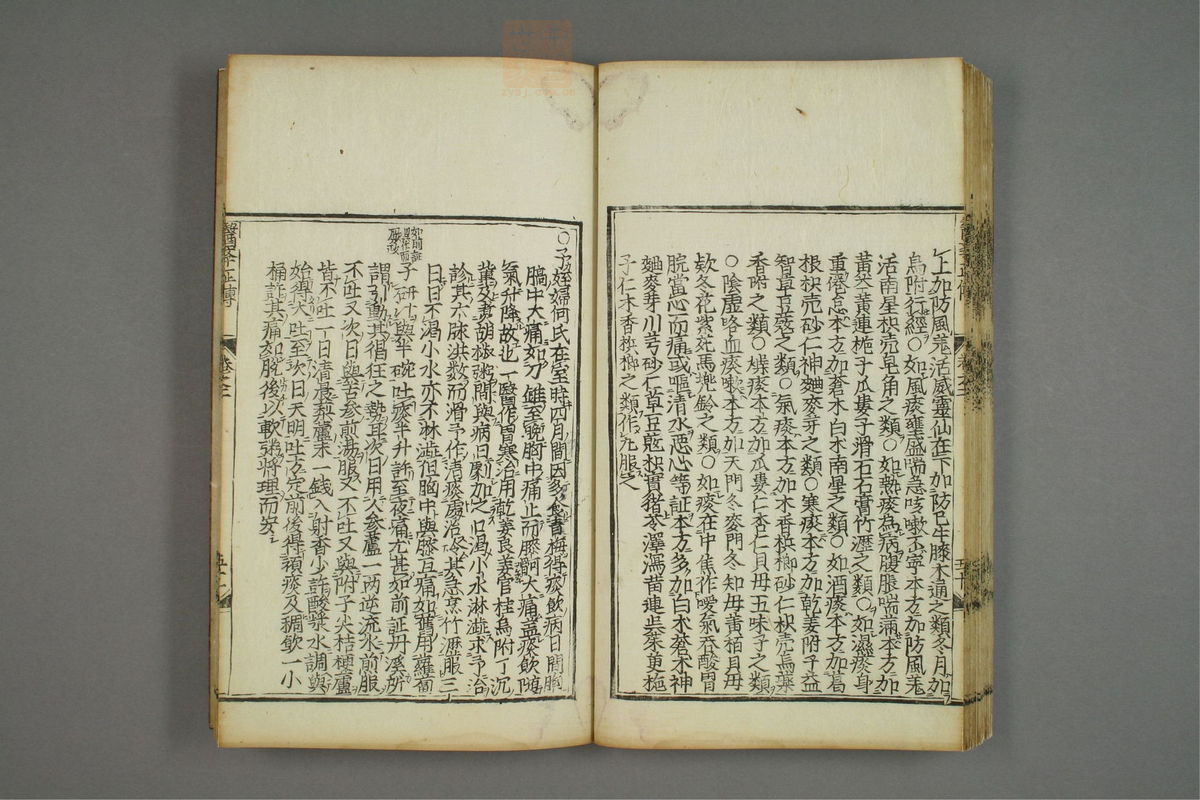 上加防風羌活威靈仙在下加防已牛膝木通之類冬月加
烏附行經○如風痰壅盛喘急咳嗽不寧本方加防風羌
活南星枳壳皂角之類○如熱痰為病腹脹喘滿本方加
黃芩黃連梔子瓜蔞子滑石石膏竹瀝之類○如濕痰身
重倦怠本方加蒼术白术南星之類○如酒痰本方加葛
根枳壳砂仁神麯麥芽之類○寒痰本方加乾姜附子益
智草豆蔻之類○氣痰本方加木香梹榔砂仁枳壳烏藥
香附之類○燥痰本方加瓜蔞仁杏仁貝母五味子之類
○陰虛咯血痰嗽本方加天門冬麥門冬知母黃栢貝母
欵冬花紫菀馬兜鈴之類○如痰在中焦作噯氣吞酸胃
脘當心而痛或嘔清水惡心等証本方多加白术蒼术神
麯麥芽川芎砂仁草豆蔻枳實猪苓澤瀉黃連吳茱萸梔
子仁木香梹榔之類作丸服之
○予姪婦何氏在室時四月間因多食青梅得痰飲病日間胸
膈中大痛如刀錐至晚胸中痛止而膝䯒大痛蓋痰飲隨
氣升降故也一醫作胃寒治用乾姜良姜官桂烏附丁沉
輩及煮胡椒粥間與病日劇加之口渴小水淋澁求予治
診其六脉洪數而滑予作清痰處治令其急烹竹瀝服三
日口不渴小水亦不淋澁但胸中與膝互痛如舊用蘿蔔
子研汁與半碗吐痰半升許至夜痛尤甚如前証丹溪所
謂引動其猖狂之勢耳次日用人參蘆一兩逆流水煎服
不吐又次日與苦參煎湯服又不吐又與附子尖桔梗蘆
皆不吐一日清晨藜蘆末一錢入射香少許酸漿水調與
始得大吐至次日天明吐方定前後得頑痰及稠飲一小
桶許其痛如脫後以軟粥將理而安